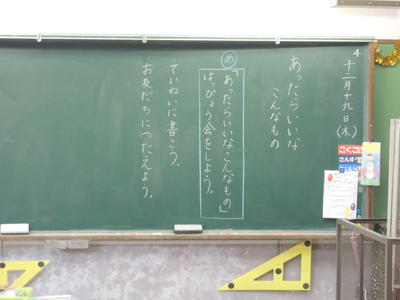 4
十二月十九日(木)
あったらいいな
こんなもの
め
「あったらいいなこんなもの」
はっぴょう会をしよう。
・ていねいに書こう。
・お友だちにつたえよう。
こくご
さんすう